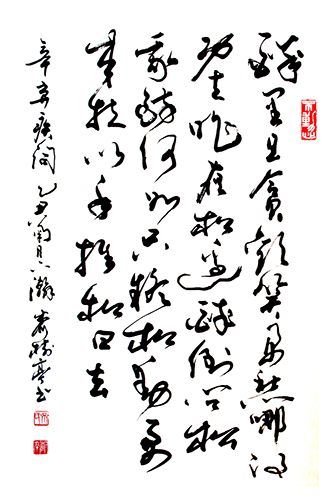 醉里且貪歡笑要愁哪得
功夫昨夜松边醉倒问松
我醉何如只疑松动要
来扶以手推松曰去
辛弃疾词乙丑